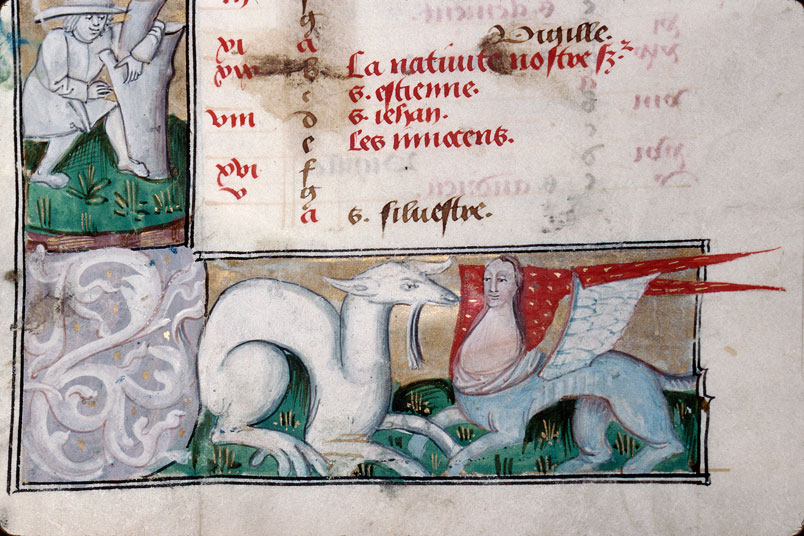 g
Vigille.
xi A
xix b La nativite nostre sr
c s. estienne.
viii d s. iehan.
e Les innocens.
xvi f
v g
A s. silvestre.